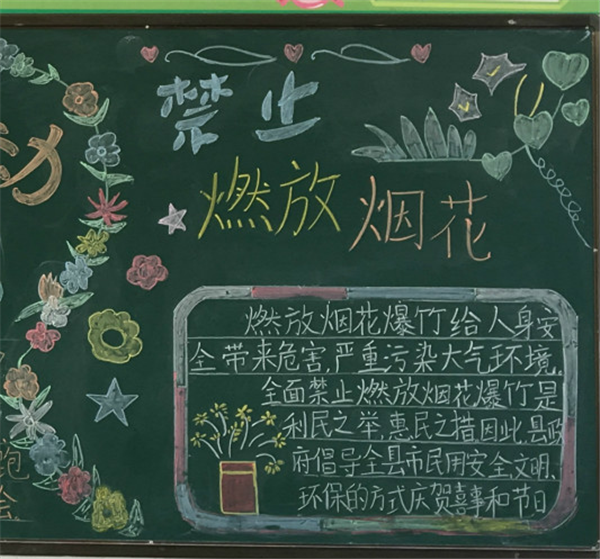 动
禁止
燃放烟花
燃放烟花爆竹给人身安
全带来危害,严重污染大气环境,
全面禁止燃放烟花爆竹是
利民之举,惠民之措因此,县政
府倡导全县市民用安全文明、
环保的方式庆贺喜事和节日